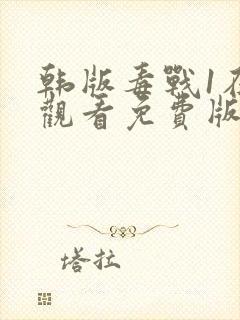 韩版毒戰1在
觀看免費版
塔拉